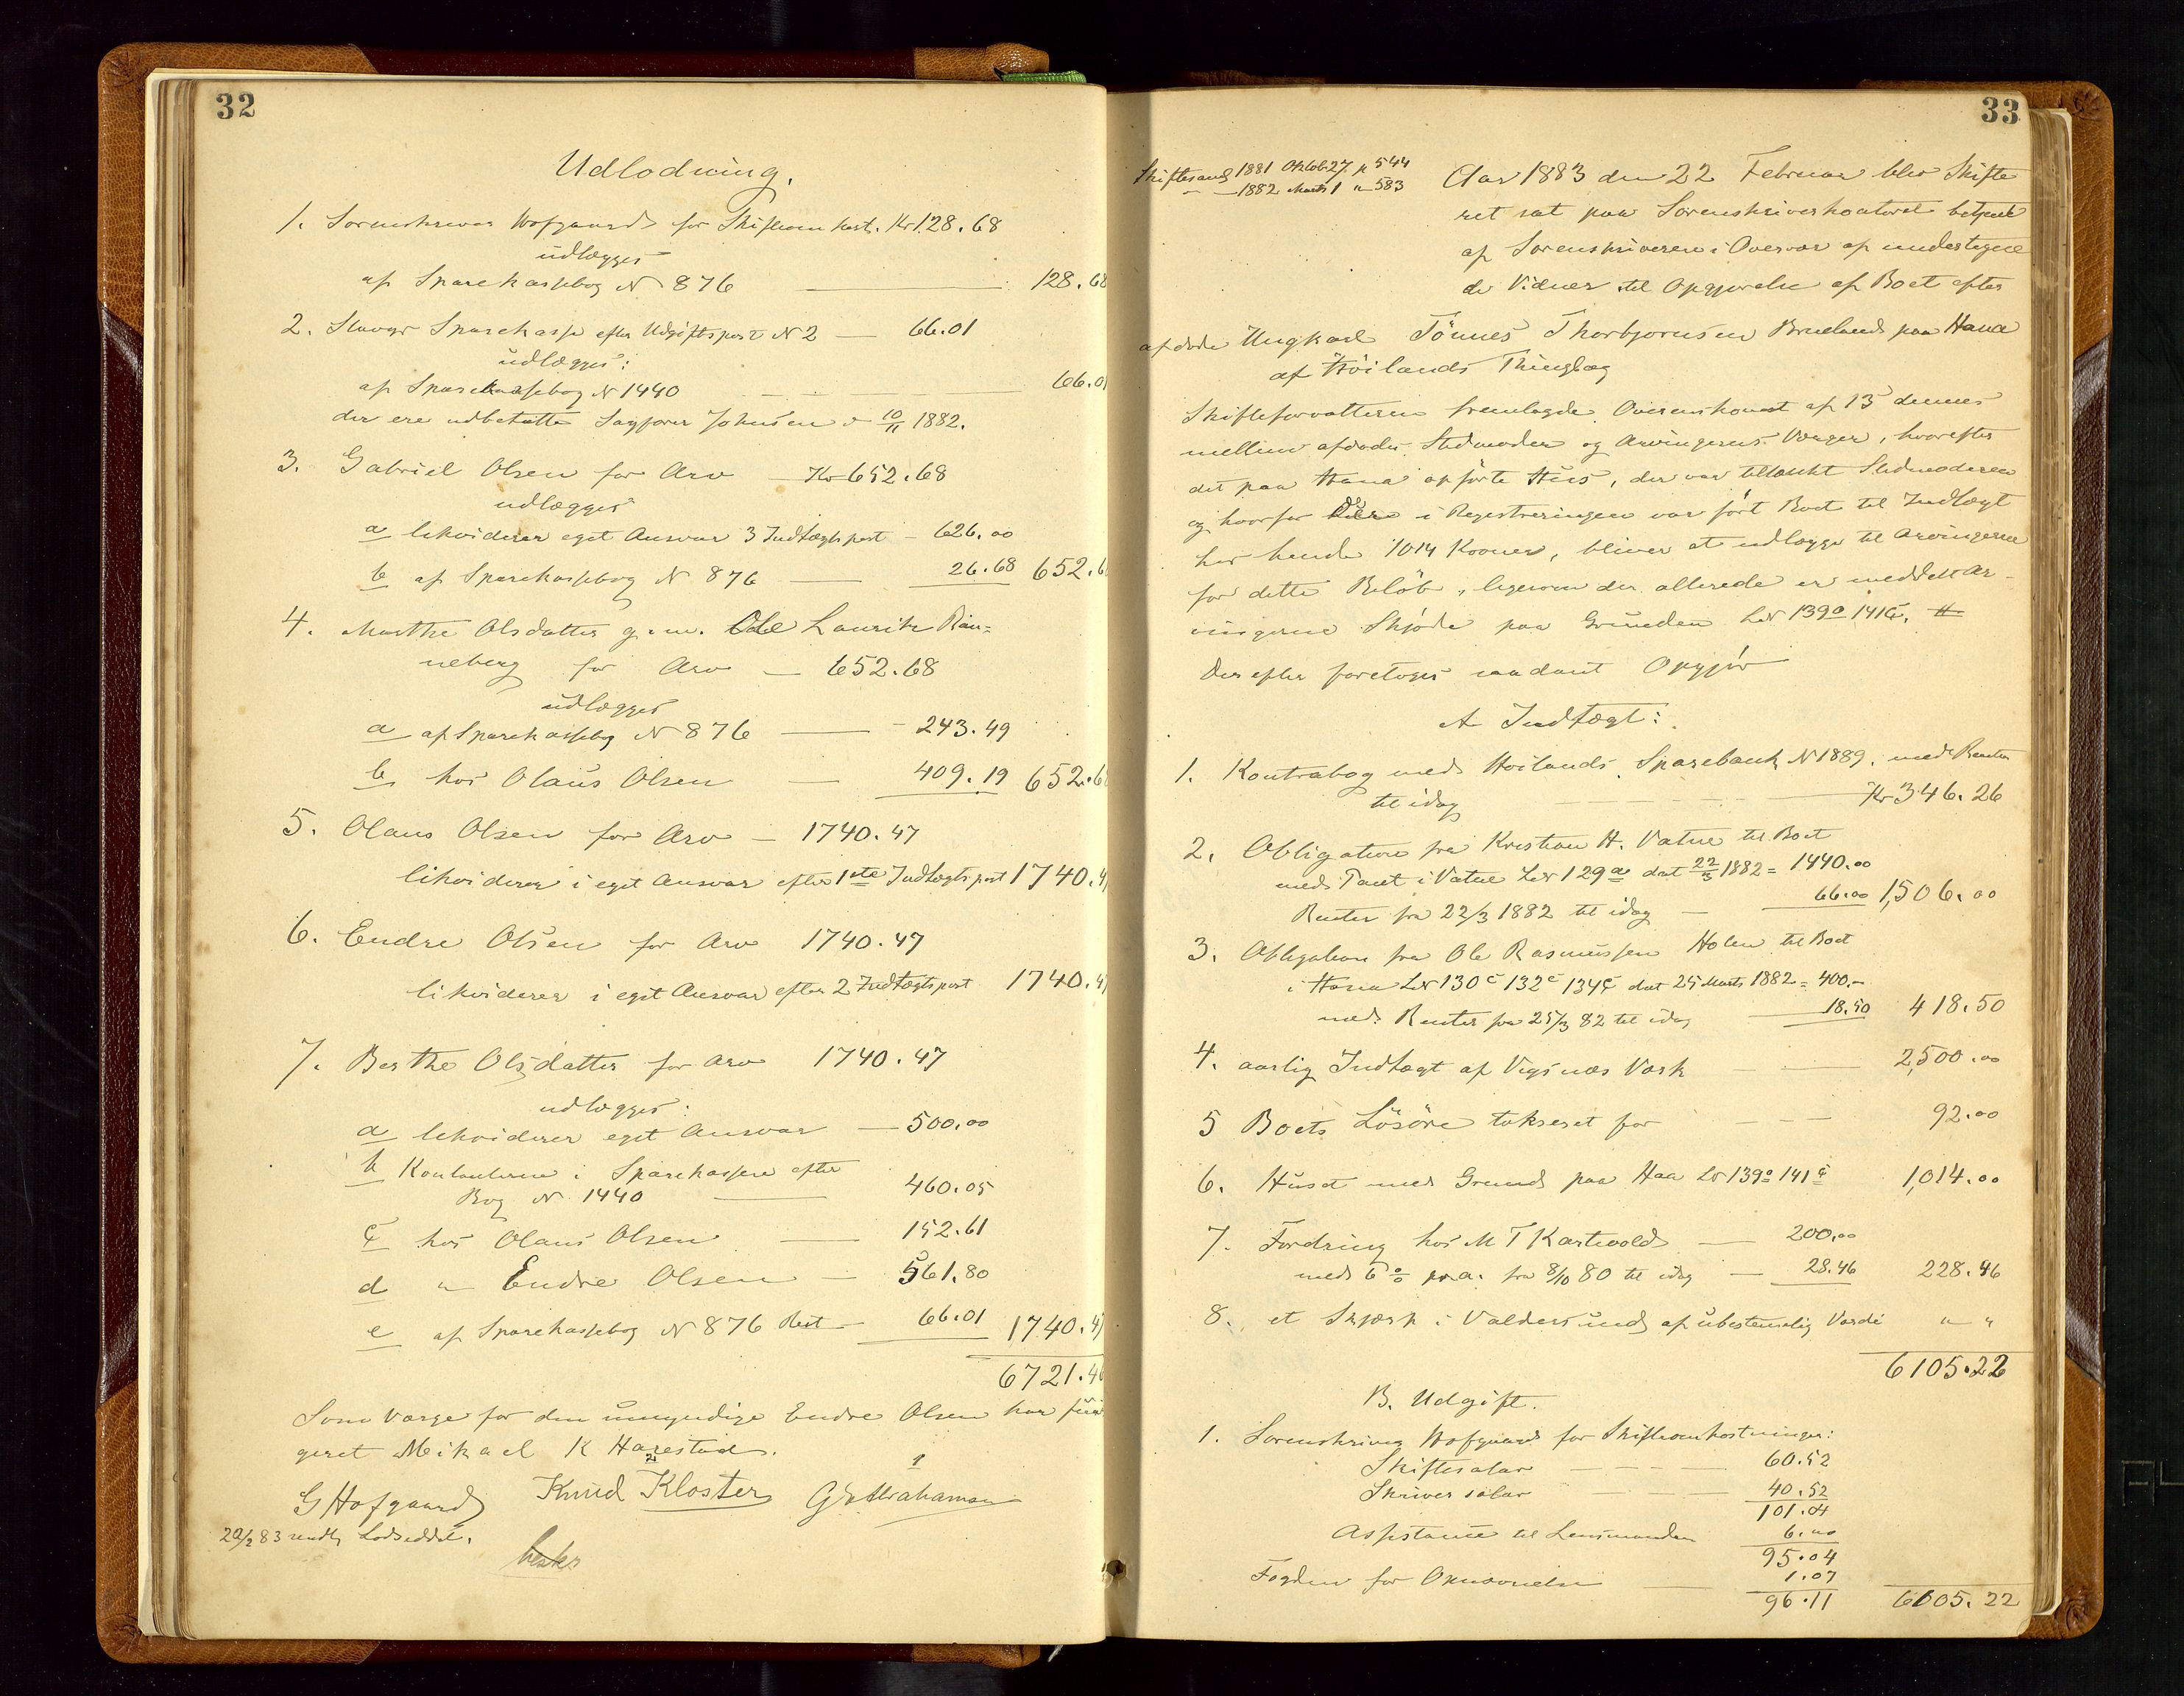 32
Udlodning.
1. Sorenskriver Hofgaard for Skifteomkost. Kr 128.68
udlægges
af Sparekassebog N 876 128.68
2. Stavgr Sparekasse efter Udgiftspost N 2 — 66.01
udlægges:
af Sparekassebog N 1440 66.01
der ere udbetalte Sagfører Johnsen d 10/11 1882.
3. Gabriel Olsen for Arv — Kr 652.68
udlægges
a likviderer eget Ansvar 3 Indtægtspost — 626.00
b af Sparekassebog N 876 — 26.68 652.6
4. Marthe Olsdatter g. m. Ole Lauritz Rän=
neberg for Arv — 652.68
udlægges
a af Sparekassebog N 876 — 243.49
b hos Olaus Olsen — 409.19 652.6
5. Olaus Olsen for Arv — 1740.47
likviderer i eget Ansvar efter 1ste Indtægtspost 1740.4
6. Endre Olsen for Arv 1740.47
likviderer i eget Ansvar efter 2 Indtægtspost 1740.4
7. Berthe Olsdatter for Arv 1740.47
udlægges:
a likviderer eget Ansvar — 500.00
b Kontanterne i Sparekassen efter
Bog N 1440 — 460.05
c hos Olaus Olsen — 152.61
d " Endre Olsen — 561.80
e af Sparekassebog N 876 Rest — 66.01 1740.47
6721.46
Som Værge for den umyndige Endre Olsen har fun
geret Mikael K Harestad.
G Hofgaard Knud Kloster G Abrahamsen
20/2 83 sendt Lodseddel.
33
Skiftesaml 1881 Oktob 27. p 544
" — 1882 Marts 1 " 583
Aar 1883 den 22 Februar blev Skifte
ret sat paa Sorenskriverkontoret betjent
af Sorenskriveren i Overvær af undertegne
de Vidner til Opgjørelse af Boet efter
afdøde Ungkarl Tönnes Thorbjørnsen Brueland paa Hana
af Höilands Thinglag
Skifteforvalteren fremlagde Overenskomst af 13 dennes
mellem afdødes Stedmoder og Arvingernes Værger, hvorefter
det paa Hana opførte Hüs, der var tiltænkt Stedmoderen
og hvorfor der i Registreringen var fört Boet til Indtægt
hos hende 1014 Kroner, bliver at udlægge til Arvingerne
for dette Belöb, ligesom der allerede er meddelt Ar-
vingerne Skjøde paa Grunden LN 139a 141c.
Derefter foretoges saadant Opgjör
A Indtægt:
1. Kontrabog med Höilands Sparebank N 1889. med Renter
til idag Kr 346.26
2. Obligation fra Kristian H. Vatne til Boet
med Pant i Vatne LN 129a dat 22/3 1882 = 1440.00
Renter fra 22/3 1882 til idag — 66.00 1,506.00
3. Obligation fra Ole Rasmussen Holen til Boet
i Hana LN 130c 132c 134c dat 25 Marts 1882 = 400.—
med Renter fra 25/3 82 til idag 18.50 418.50
4. aarlig Indtægt af Vigsnæs Værk 2,500.00
5 Boets Lösöre takseret for 92.00
6. Huset med Grund paa Haa LN 139a 141c 1,014.00
7. Fordring hos M T Kartvold — 200.00
med 6 % p. a. fra 8/10 80 til idag — 28.46 228.46
8. et Skjærp i Valdersund af ubestemelig Værdi " "
6105.22
B. Udgift.
1. Sorenskriver Hofgaard for Skifteomkostninger:
Skiftesalær 60.52
Skriversalær 40.52
101.04
Assistance til Lensmanden 6.00
95.04
Fogden for Opnævnelse 1.07
96.11 6105.22